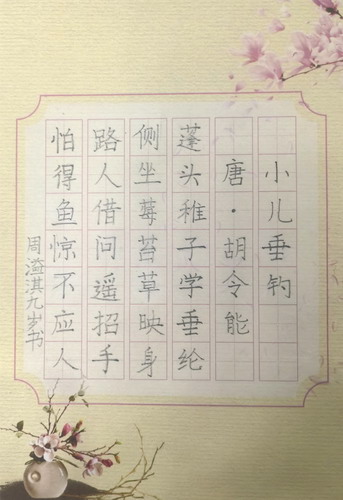 小儿垂钓
唐·胡令能
蓬头稚子学垂纶
侧坐莓苔草映身
路人借问遥招手
怕得鱼惊不应人
周溢淇九岁书